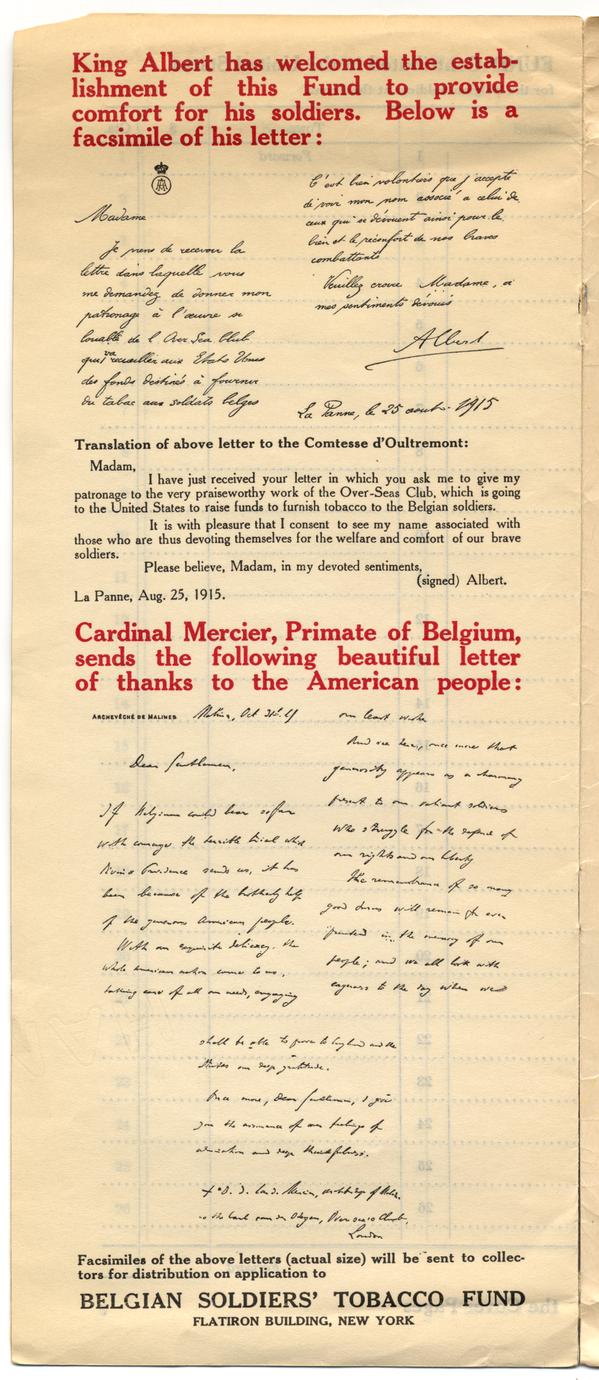 King Albert has welcomed the estab-
lishment of this Fund to provide
comfort for his soldiers. Below is a
facsimile of his letter:
Madame
Je viens de recevoir la
lettre dans laquelle vous
me demandez de donner mon
patronage à l'œuvre si
louable de l'Over Sea Club
qui va recueillir aux Etats Unis
des fonds destinés à fournir
du tabac aux soldats belges
C'est bien volontiers que j'accepte
de voir mon nom associé à celui de
ceux qui se dévouent ainsi pour le
bien et le réconfort de nos braves
combattants
Veuillez croire Madame, à
mes sentiments dévoués
Albert
La Panne, le 25 août 1915
Translation of above letter to the Comtesse d'Oultremont:
Madam,
I have just received your letter in which you ask me to give my
patronage to the very praiseworthy work of the Over-Seas Club, which is going
to the United States to raise funds to furnish tobacco to the Belgian soldiers.
It is with pleasure that I consent to see my name associated with
those who are thus devoting themselves for the welfare and comfort of our brave
soldiers.
Please believe, Madam, in my devoted sentiments,
(signed) Albert.
La Panne, Aug. 25, 1915.
Cardinal Mercier, Primate of Belgium,
sends the following beautiful letter
of thanks to the American people:
ARCHEVÊCHÉ DE MALINES
Malines, Oct 31st 15
Dear Gentlemen,
If Belgium could bear so far
with courage the terrible trial which
Divine Providence sends us, it has
been because of the brotherly help
of the generous American people.
With an exquisite delicacy, the
whole american nation comes to us,
taking care of all our needs, engaging
our least wish
And see here, once more that
generosity appears as a charming
present to our valiant soldiers
who struggle for the defence of
our rights and our liberty
The remembrance of so many
good deeds will remain for ever
printed in the memory of our
people; and we all look with
eagerness to the day when we
shall be able to prove to England and the
States our deep gratitude.
Once more, Dear Gentlemen, I give
you the assurance of our feelings of
admiration and deep thankfulness.
+ D. J. Card. Mercier, archbishop of Malines
Over seas Club,
London
Facsimiles of the above letters (actual size) will be sent to collec-
tors for distribution on application to
BELGIAN SOLDIERS' TOBACCO FUND
FLATIRON BUILDING, NEW YORK